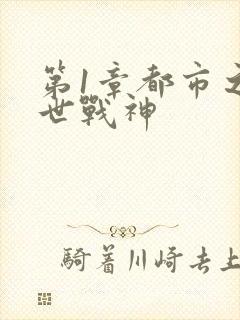 第1章都市之
世戰神
騎着川崎去上